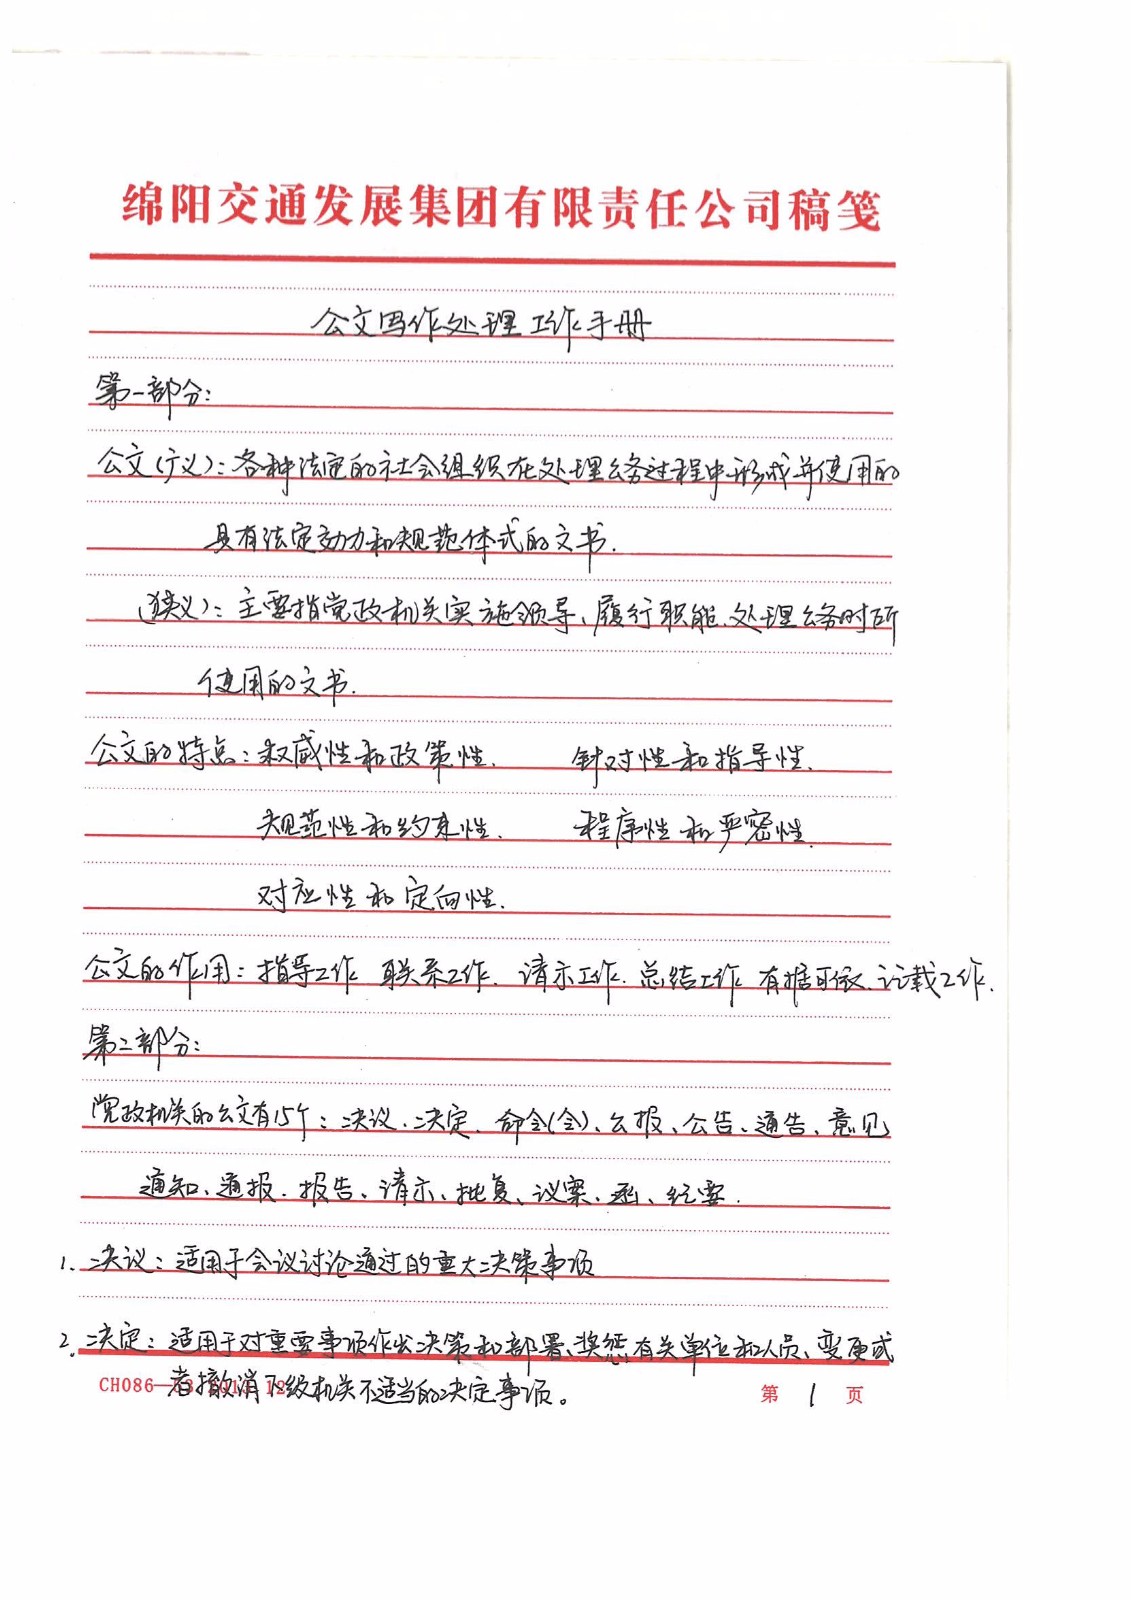 绵阳交通发展集团有限责任公司稿笺
公文写作处理工作手册
第一部分:
公文(广义):各种法定的社会组织在处理公务过程中形成并使用的
具有法定效力和规范体式的文书.
(狭义):主要指党政机关实施领导、履行职能、处理公务时所
使用的文书.
公文的特点:权威性和政策性. 针对性和指导性.
规范性和约束性. 程序性和严密性.
对应性和定向性.
公文的作用:指导工作 联系工作. 请示工作. 总结工作 有据可徵. 记载工作.
第二部分:
党政机关的公文有15个:决议、决定、命令(令)、公报、公告、通告、意见
通知、通报、报告、请示、批复、议案、函、纪要.
1. 决议:适用于会议讨论通过的重大决策事项
2. 决定:适用于对重要事项作出决策和部署、奖惩有关单位和人员、变更或
者撤消下级机关不适当的决定事项。
CH086— 第 1 页